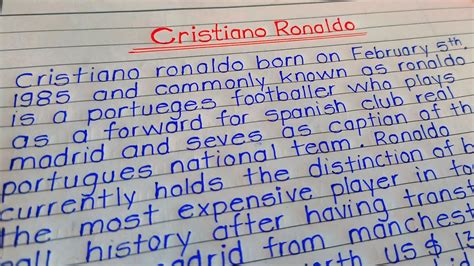 Cristiano Ronaldo
Cristiano ronaldo born on February 5th,
1985 and commonly known as ronaldo
is a portueges footballer who plays
as a forward for spanish club real
madrid and seves as captian of th
portugues national team. Ronaldo
currently holds the distinction of b
the most expensive player in fo
all history after having transf
adrid from manchest
orth US $ 13